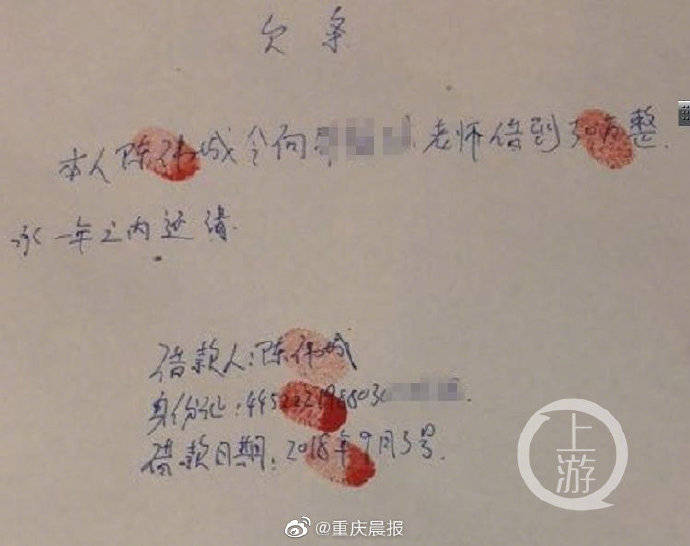 欠条
本人陈伟城今向 老师借到 万整.
一年之内还清.
借款人:陈伟城
身份证:445222198803
借款日期:2018年9月5号.
上游
@重庆晨报